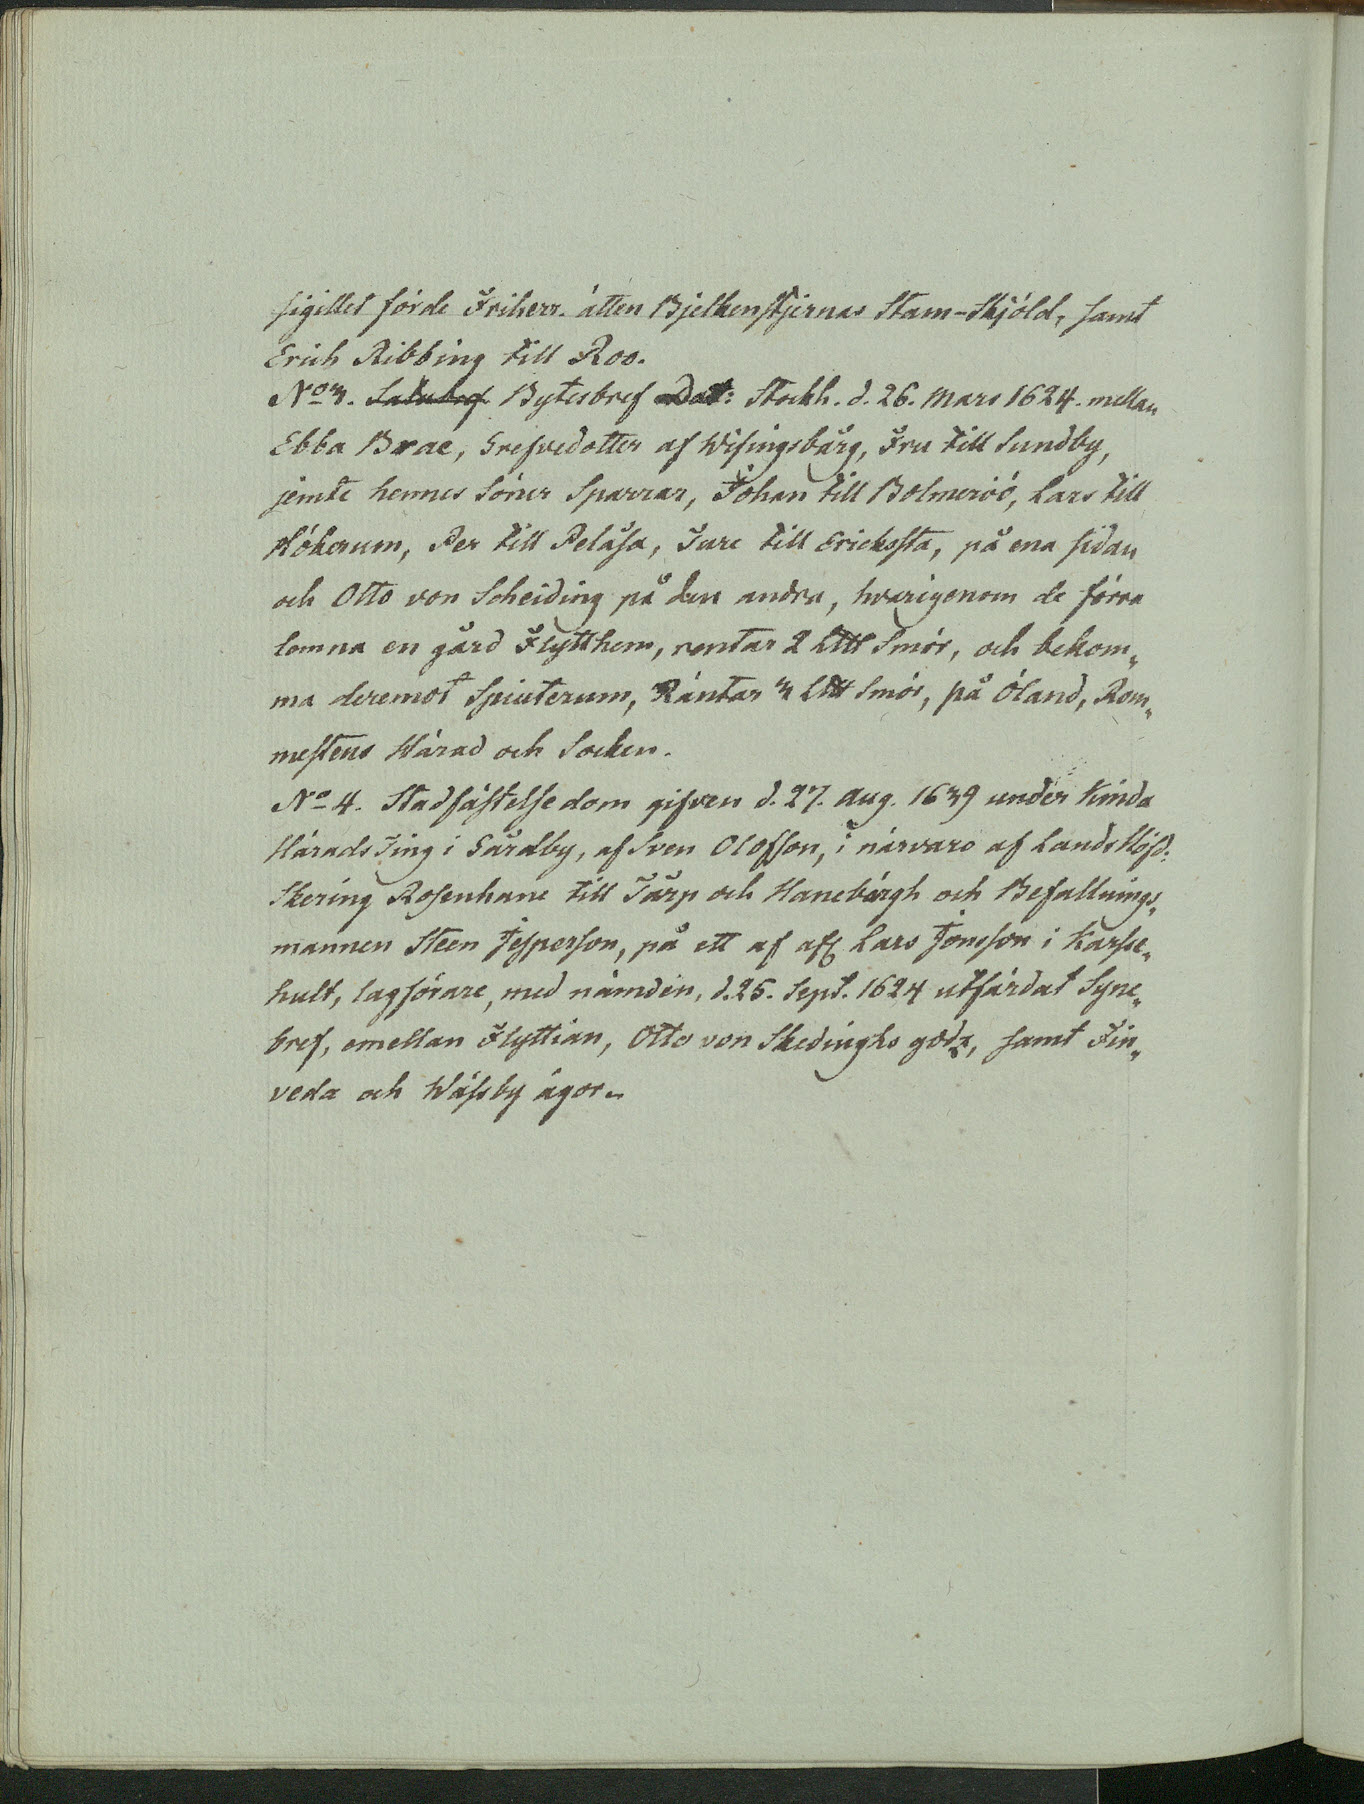 sigillet förde Friherr. ätten Bjelkenstjernas Stam-Skjöld, samt
Erich Ribbing till Roo.
No 3. Salubref Bytesbref Dat: Stockh. d. 26. Mars 1624. mellan
Ebba Brae, Grefvedotter af Wisingsbårg, Fru till Sundby,
jemte hennes Söner Sparrar, Johan till Bolmeröö, Lars till
Hökerum, Per till Pelåsa, Ture till Erickssta, på ena sidan
och Otto von Scheiding på den andra, hvarigenom de förra
lemna en gård Flytthem, rentar 2 L℔ Smör, och bekom„
ma deremot Spiuterum, Räntar 3 L℔ Smör, på Öland, Rom„
mestens Härad och Socken.
No 4. Stadfästelse dom gifven d. 27. Aug. 1639 under Kinda
Härads Ting i Gårdby, af Sven Olofson, i närvaro af Lands Höfd:
Skering Rosenhane till Tårp och Hanebärgh och Befallnings„
mannen Steen Jesperson, på ett af afl Lars Jonsson i Karsse„
hult, lagförare, med nämden, d. 25. Sept. 1624 utfärdat Syne„
bref, emellan Flyttian, Otto von Skedinghs godz, samt Fin„
veda och Wässby ägor.